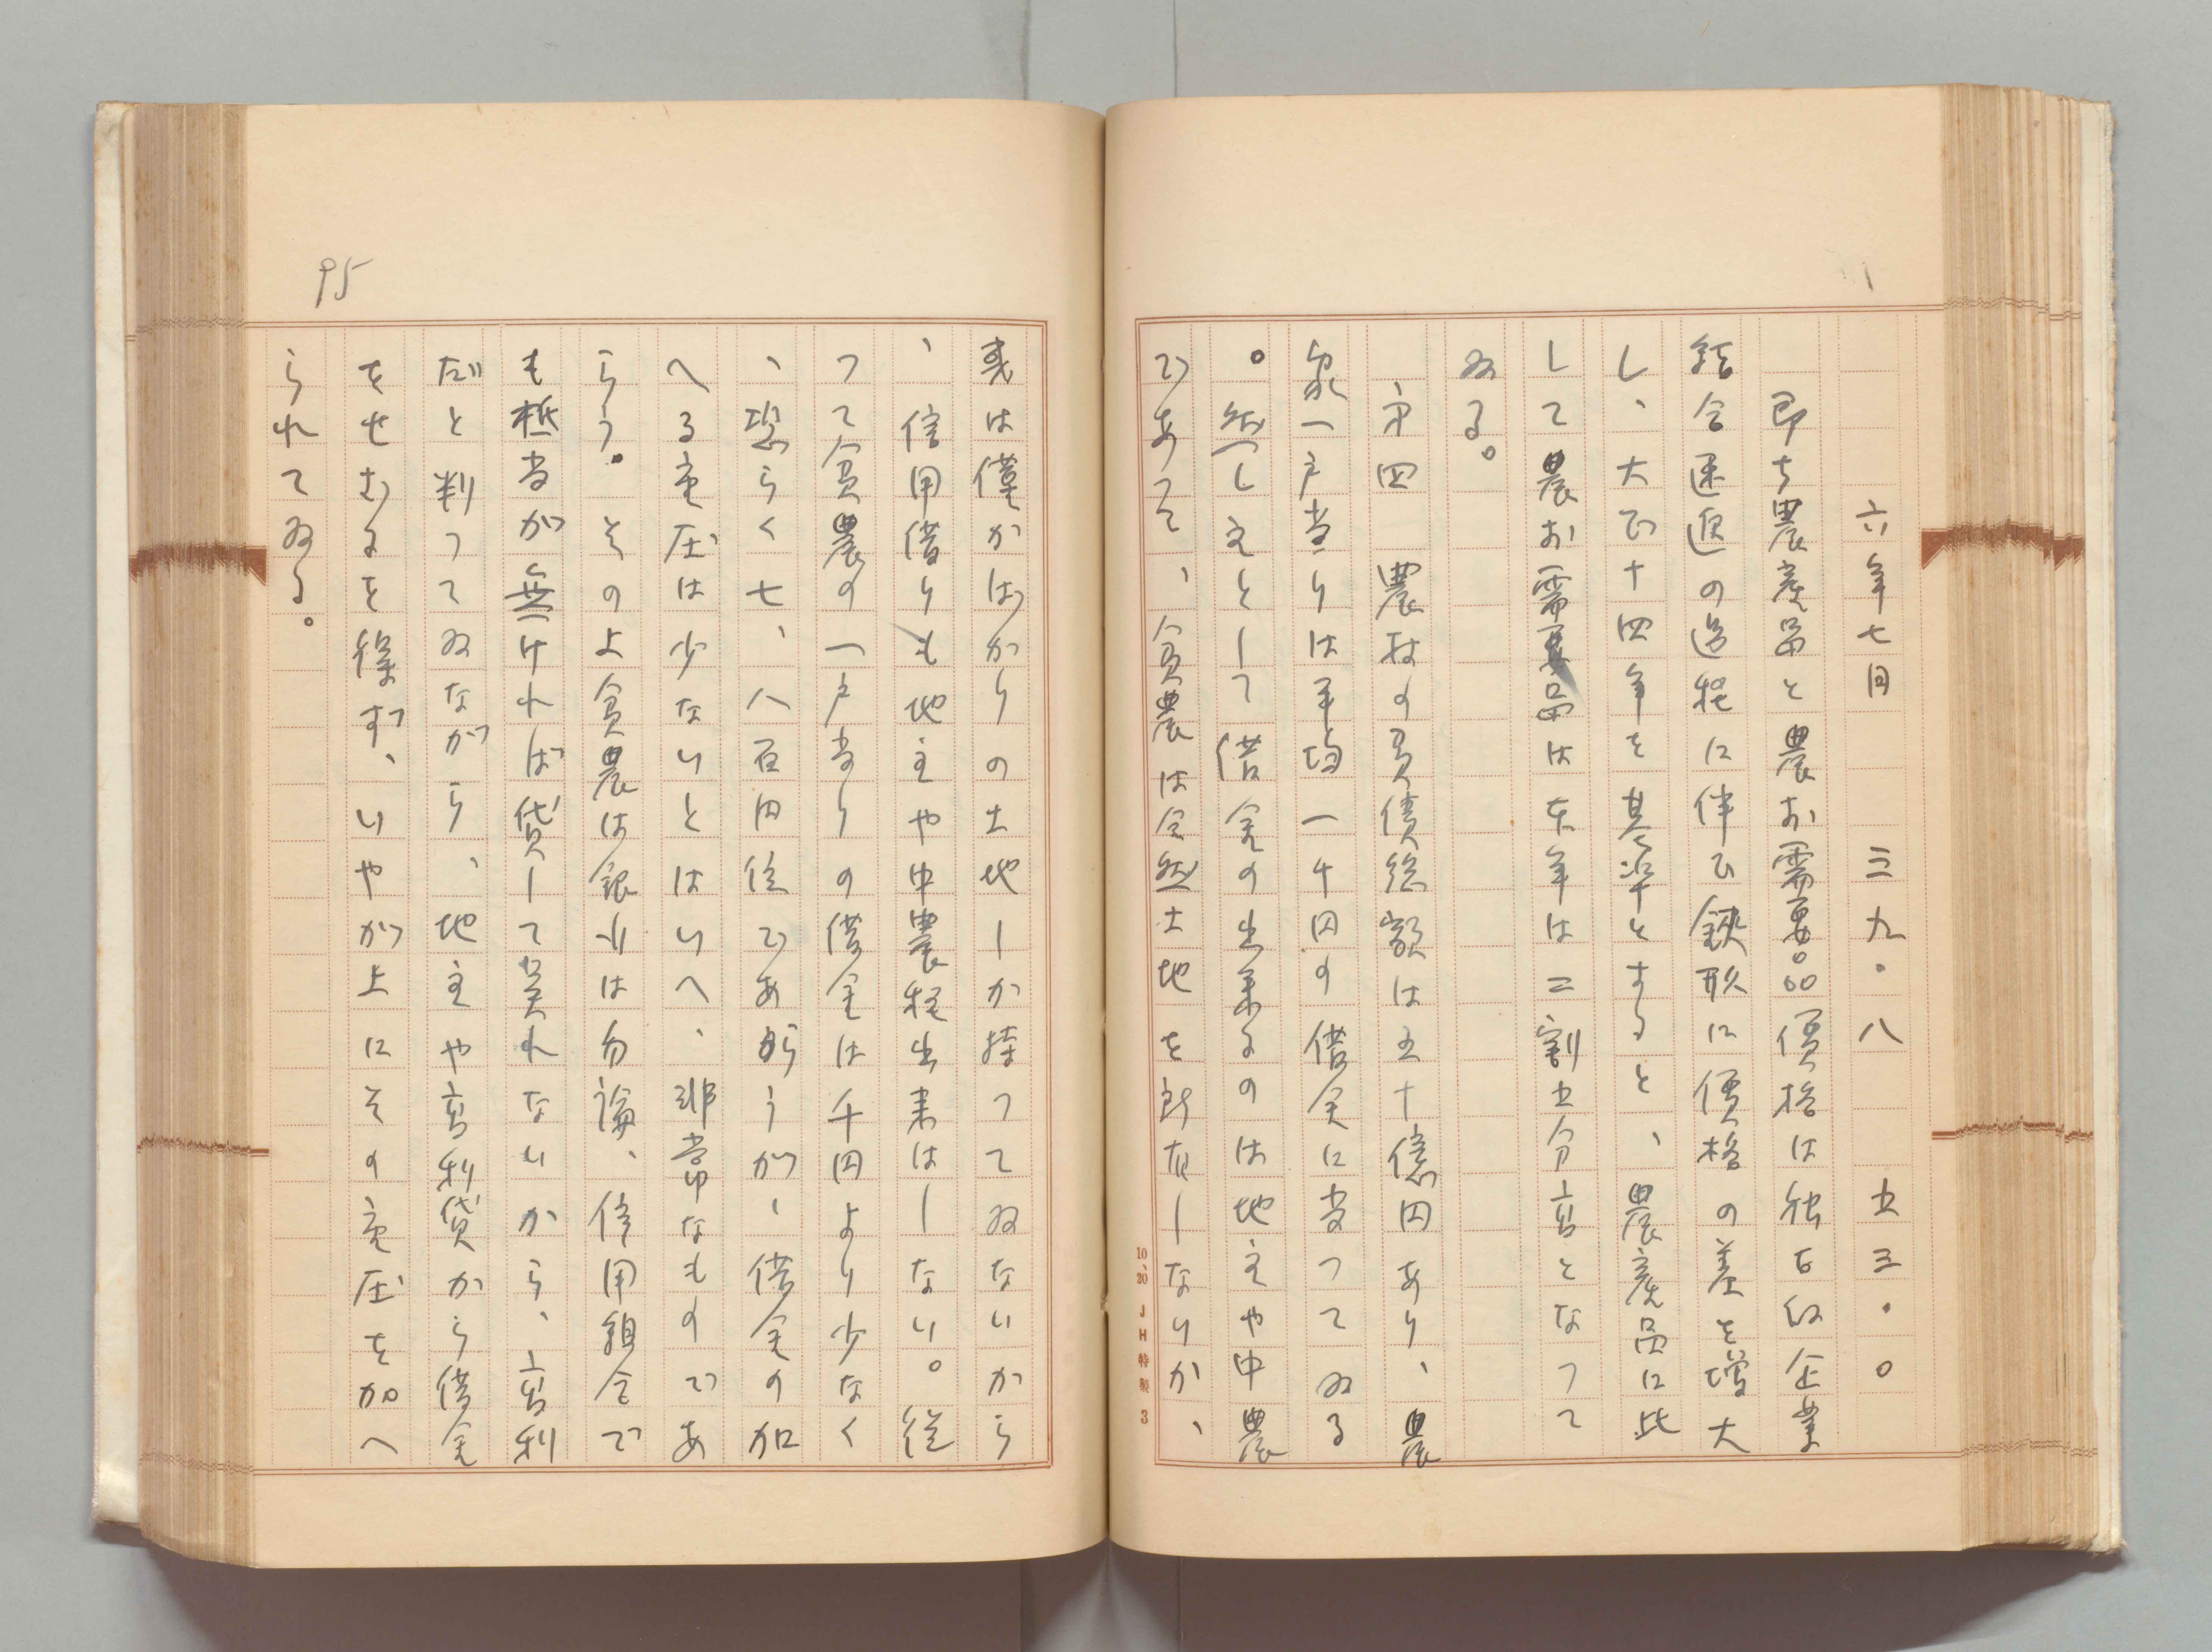 六年七月　三九・八　五三・〇
即ち農産品と農村需要品。価格は独占的企業
結合速進の過程に伴ひ鋏形に価格の差を増大
し、大正十四年を基準とすると、農産品に比
して農村需要品は本年は二割五分高となつて
ゐる。
第四　農村の負債総額は五十億円あり、農
家一戸当りは平均一千円の借金に当つてゐる
。然し主として借金の出来るのは地主や中農
であつて、貧農は全然土地を所有しないか、
或は僅かばかりの土地しか持つてゐないから
、信用借りも地主や中農程出来はしない。従
つて貧農の一戸当りの借金は千円より少なく
、恐らく七、八百円位であらうが、借金の加
へる重圧は少ないとはいへ、非常なものであ
らう。その上貧農は銀行は勿論、信用組合で
も抵当が無ければ貸して呉れないから、高利
だと判つてゐながら、地主や高利貸から借金
をせざるを得ず、いやが上にその重圧を加へ
られてゐる。
95
10、20 JH特製 3